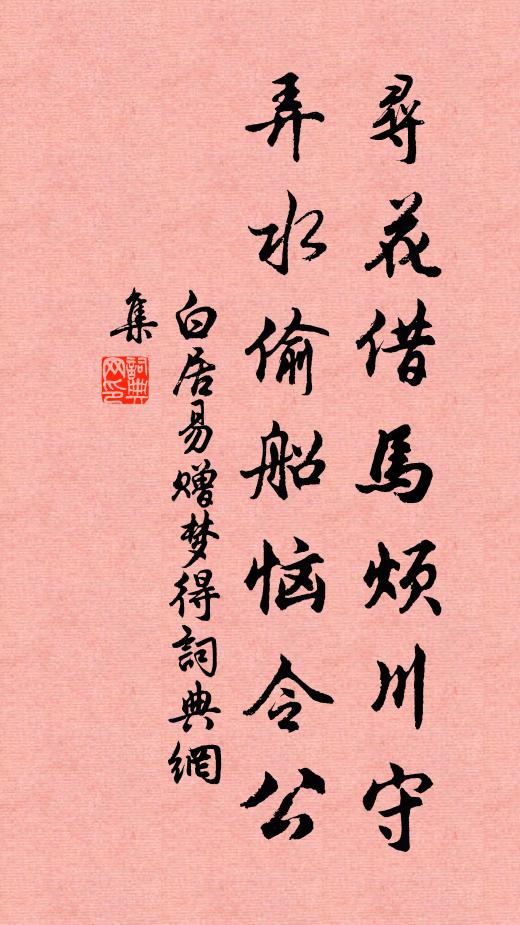 尋花借馬煩川守
弄水偷船恼令公
白居易赠梦得詞典網
集
詞典
网印